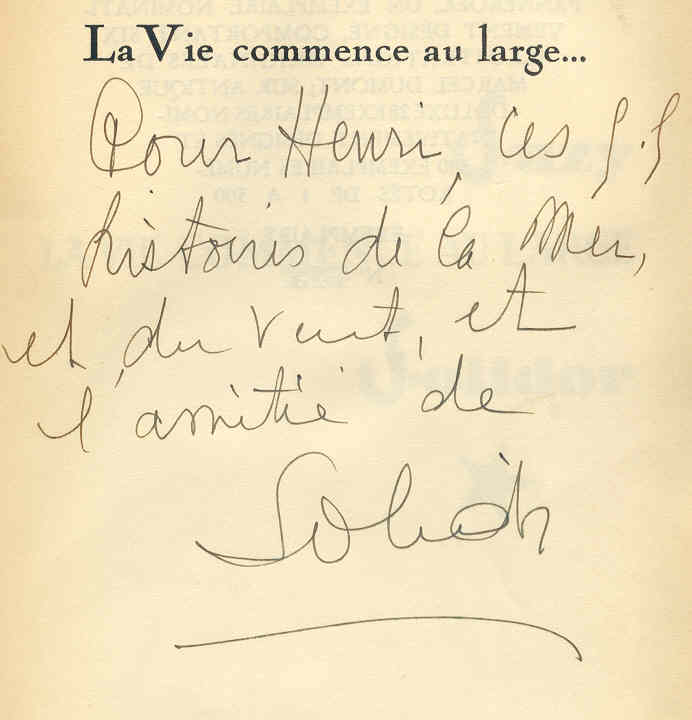 La Vie commence au large...
Pour Henri, ces
histoires de la Mer,
et du vent, et
l'amitié de
Solidor